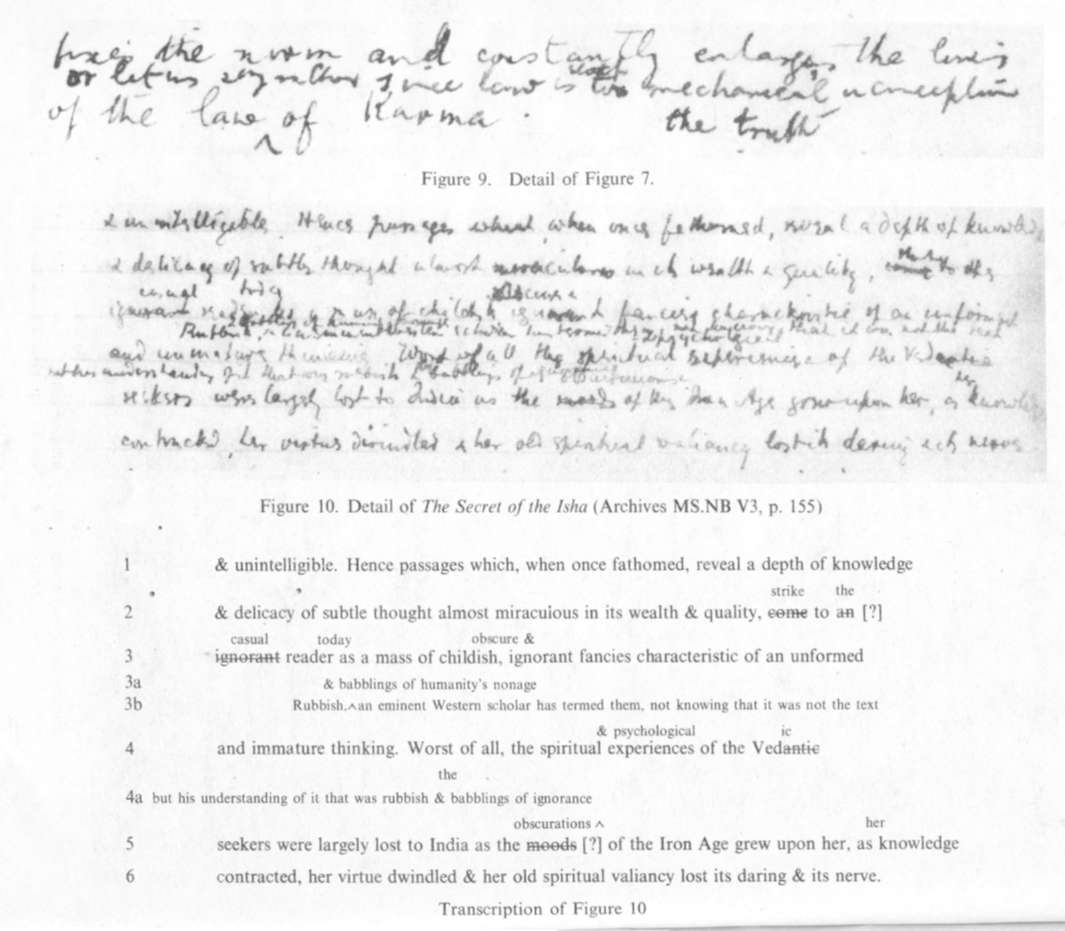 fixes the norm and constantly enlarges the lines
or let us say rather, since law is too mechanical a conception
of the law of Karma.
the truth
Figure 9. Detail of Figure 7.
& unintelligible. Hence passages which, when once fathomed, reveal a depth of knowledge
& delicacy of subtle thought almost miraculous in its wealth & quality, come to the
casual today obscure &
ignorant reader as a mass of childish, ignorant fancies characteristic of an unformed
Rubbish, an eminent Western scholar has termed them, not knowing that it was not the text
& psychological
and immature thinking. Worst of all, the spiritual experiences of the Vedantic
but his understanding of it that was rubbish & babblings of
her
seekers were largely lost to India as the moods of the Iron Age grew upon her, as knowledge
contracted, her virtue dwindled & her old spiritual valiancy lost its daring & its nerve.
Figure 10. Detail of The Secret of the Isha (Archives MS.NB V3, p. 155)
1 & unintelligible. Hence passages which, when once fathomed, reveal a depth of knowledge
strike the
2 & delicacy of subtle thought almost miraculous in its wealth & quality, come to an [?]
casual today obscure &
3 ignorant reader as a mass of childish, ignorant fancies characteristic of an unformed
3a & babblings of humanity's nonage
3b Rubbish.^an eminent Western scholar has termed them, not knowing that it was not the text
& psychological ic
4 and immature thinking. Worst of all, the spiritual experiences of the Vedantic
the
4a but his understanding of it that was rubbish & babblings of ignorance
obscurations ^ her
5 seekers were largely lost to India as the moods [?] of the Iron Age grew upon her, as knowledge
6 contracted, her virtue dwindled & her old spiritual valiancy lost its daring & its nerve.
Transcription of Figure 10